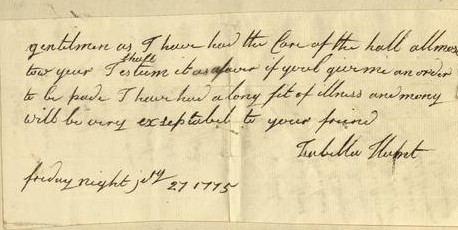 gentelmen as I have had the Care of the hall allmos
tow year I shall Estum it as a favor if youl giv me an order
to be pade I have had a long fit of illness and mony
will be very exseptabel to your friend
Isabella Hunt
friday night july 27 1775